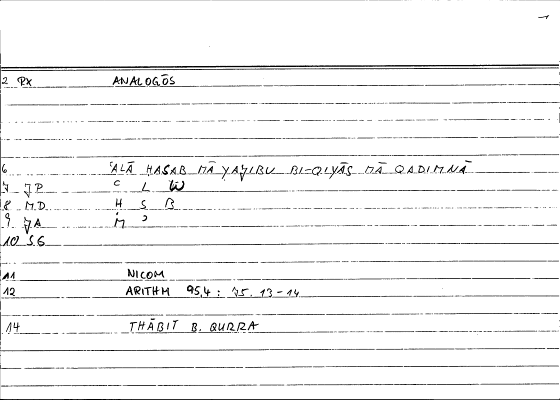 2 RX ANALOGŌS
6 ʿALĀ HASAB MĀ YAJIBU BI-QIYĀS MĀ QADIMNĀ
7 JP C L W
8 M.D H S B
9 JA M ʾ
10 S.G
11 NICOM
12 ARITHM 95,4 : 75. 13-14
14 THĀBIT B. QURRA